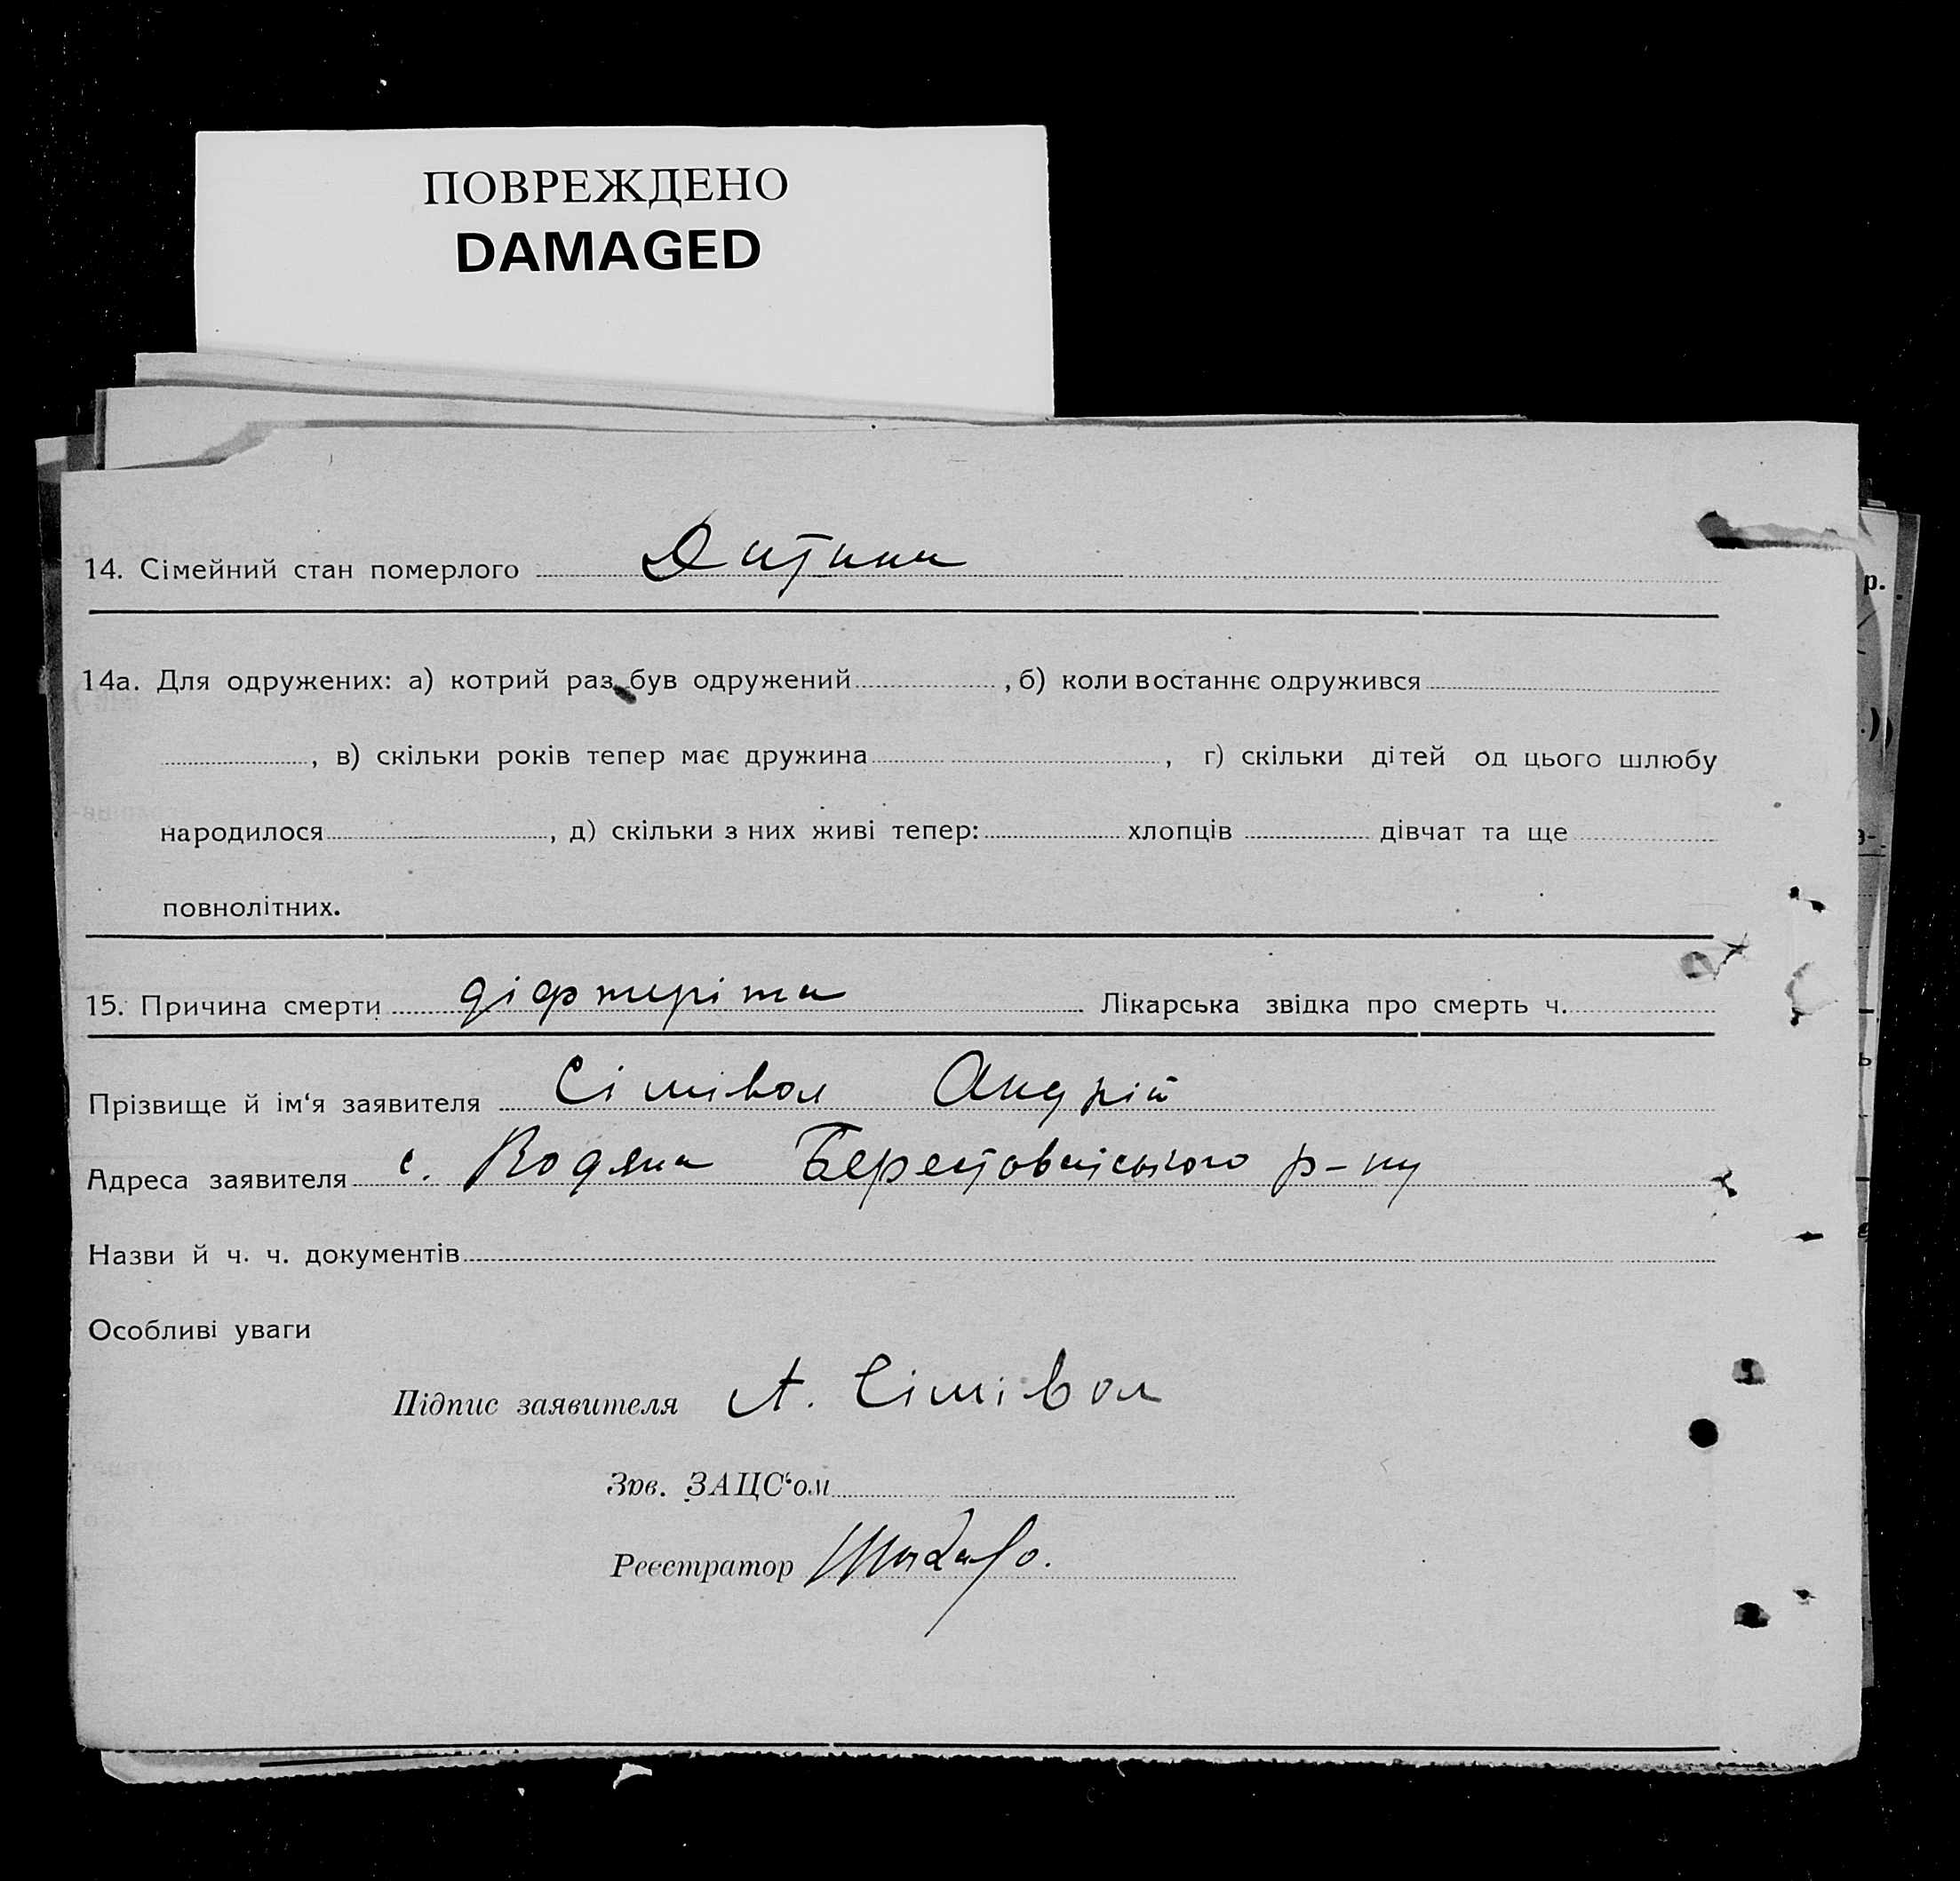 ПОВРЕЖДЕНО
DAMAGED
14. Сімейний стан померлого Дитина
14а. Для одружених: а) котрий раз був одружений , б) коли востаннє одружився
, в) скільки років тепер має дружина , г) скільки дітей од цього шлюбу
народилося , д) скільки з них живі тепер: хлопців дівчат та ще
повнолітних.
15. Причина смерти діфтеріта Лікарська звідка про смерть ч.
Прізвище й ім‘я заявителя Сімівол Андрій
Адреса заявителя с. Водяна Берестовенського р-ну
Назви й ч. ч. документів
Особливі уваги
Підпис заявителя А. Сімівол
Зав. ЗАЦС‘ом
Реєстратор